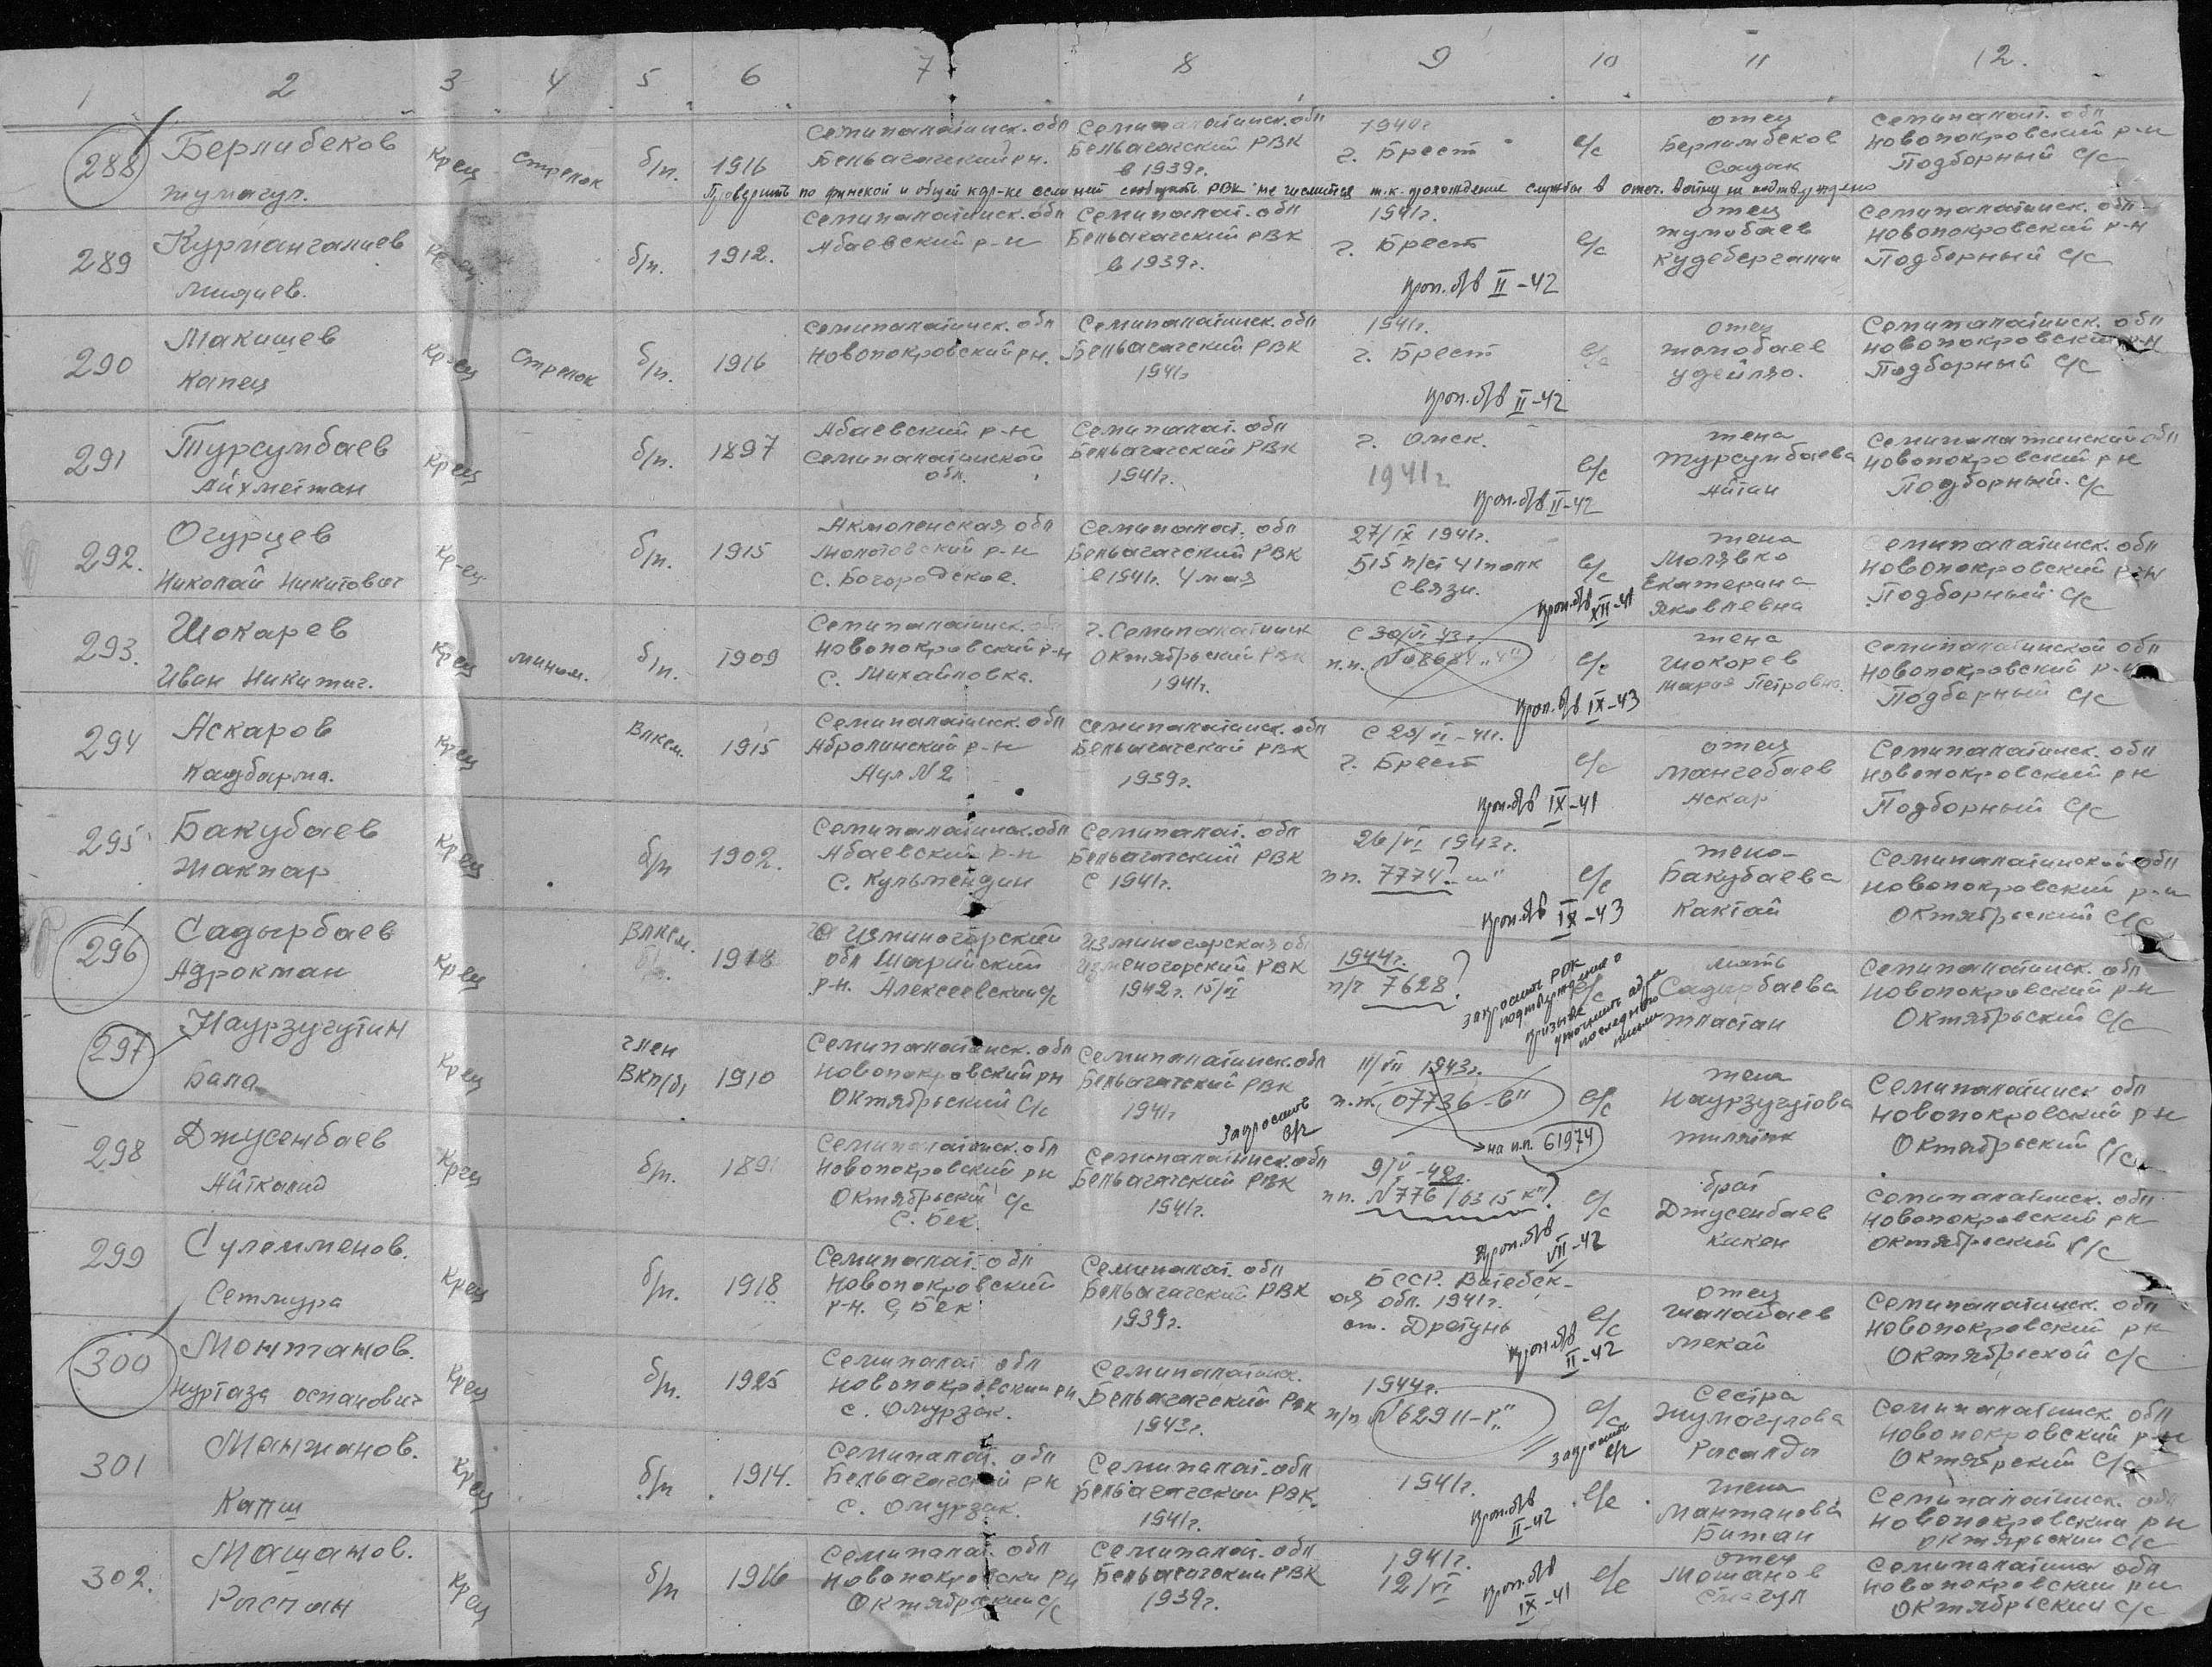 1 2 3 4 5 6 7 8 9 10 11 12.
288 Берлибеков Жумагул. Кр-ец стрелок б/п. 1916 Семипалатинск. обл Бельагачский р-н. Семипалатинск. обл Бельагачский РВК в 1939г. 1940г г. Брест с/с отец Берлимбеков Садак Семипалат. обл Новопокровский р-н Подборный с/с
Проверить по финской и общей кар-ке если нет сообщить РВК не числится т.к. прохождение службы в отеч. войну не подтверждено
289 Курмангалиев б/п. 1912. Семипалатинск. обл Абаевский р-н Семипалат. обл Бельагачский РВК в 1939г. 1941г. г. Брест проп. б/в II-42 с/с отец Жумабаев Семипалатинск. обл. Новопокровский р-н Подборный с/с
290 Макишев Капец Кр-ец Стрелок б/п. 1916 Семипалатинск. обл Новопокровский р-н. Семипалатинск. обл Бельагачский РВК 1941г 1941г. г. Брест проп. б/в II-42 с/с отец Семипалатинск. обл Новопокровский р-н Подборный с/с
291 Турсумбаев Айхметжан Кр-ец б/п. 1897 Абаевский р-н Семипалатинской обл. Семипалат. обл Бельагачский РВК 1941г. г. Омск. 1941г проп. б/в II-42 с/с жена Турсумбаева Айтан Семипалатинский обл Новопокровский р-н Подборный. с/с
292. Огурцев Николай Никитович Кр-ец б/п. 1915 Акмоленская обл Молотовский р-н С. Богородское. Семипалат. обл Бельагачский РВК в 1941г. 4 мая 27/IX 1941г. 515 п/ст 41 полк связи. проп. б/в XII-41 с/с жена Молявко Екатерина Яковлевна Семипалатинск. обл Новопокровский р-н Подборный с/с
293. Шокарев Иван Никитич. Кр-ец мином. б/п. 1909 Семипалатинск. обл Новопокровский р-н С. Михайловка. г. Семипалатинск Октябрьский РВК 1941г. С 30/VI 43г. п.п. проп. б/в IX-43 с/с жена Шокорев Мария Петровна. Семипалатинской обл Новопокровский р-н Подборный с/с
294 Аскаров Каирбарма. Кр-ец Влксм. 1915 Семипалатинск. обл Абралинский р-н Аул N 2 Семипалатинск. обл Бельагачский РВК 1939г. г. Брест проп. б/в IX-41 с/с отец Мангебаев Аскар Семипалатинск. обл Новопокровский р-н Подборный с/с
295 Бакубаев Жакпар Кр-ец б/п 1902. Семипалатинск. обл Абаевский р-н С. Кульмендин Семипалат. обл Бельагачский РВК с 1941г. 26/VI 1943г. пп. 7774? проп. б/в IX-43 с/с жена Бакубаева Кактай Семипалатинской обл Новопокровский р-н Октябрьский с/с
296 Садырбаев Адрокман Кр-ец Влксм. 1918 Изминогорский обл Шарийский р-н. Алексеевский с/с Изминогорская об Изменогорский РВК 1942г. 15/VI 1944г. п/п 7628? запросить РВК подтвуждение о призыве уточнить адрес последнего письма мать Садырбаева Жпастан Семипалатинск. обл Новопокровский р-н Октябрьский с/с
297 Наурзугутин Бапа Кр-ец член ВКП(б) 1910 Семипалатинск. обл Новопокровский р-н Октябрьский с/с Семипалатинск. обл Бельагачский РВК 1941г 11/VII 1943г. п.п. 07736-в" на п.п. 61974 запросить в/ч с/с жена Наурзугутова Семипалатинск обл Новопокровский р-н Октябрьский с/с
298 Джусенбаев Айткалий Кр-ец б/п. Семипалатинск. обл Новопокровский р-н Октябрьский с/с С. Бек. Семипалатинск. обл Бельагачский РВК 1941г. 9/V-42г. пп. N776/0315 к"? проп. б/в VII-42 с/с брат Джусенбаев Кикен Семипалатинск. обл Новопокровский р-н Октябрьский с/с
299 Сулемменов. Сетмура Кр-ец б/п. 1918 Семипалат. обл Новопокровский р-н. с. Бек Семипалат. обл Бельагачский РВК 1939г. БССР. Витебск-ая обл. 1941г. ст. Дретунь проп. б/в II-42 с/с отец Шалабаев Мекай Семипалатинск. обл Новопокровский р-н Октябрьской с/с
300 Монтанов. Нуртаза Оспанович Кр-ец б/п. 1925 Семипалат обл Новопокровский р-н с. Омурзак. Семипалатинск. Бельагачский РВК 1943г. 1944г. п/п N 62911-Г" запросить в/ч с/с сестра Жумогулова Расалды Семипалатинск обл Новопокровский р-н Октябрский с/с
301 Манжанов. Капш Кр-ец б/п. 1914. Семипалат. обл Бельагачский р-н с. Омурзак. Семипалат. обл Бельагачский РВК. 1941г. 1941г. проп. б/в II-42 с/с жена Мантанова Битан Семипалатинск. обл Новопокровский р-н Октярьский с/с
302. Машанов. Распан Кр-ец б/п 1916 Семипалат. обл Новопокровски р-н Октябрьский с/с Семипалат. обл Бельагачский РВК 1939г. 1941г. 12/VI проп. б/в IX-41 с/с отец Мошанов Смагул Семипалатинск обл Новопокровский р-н Октябрьский с/с